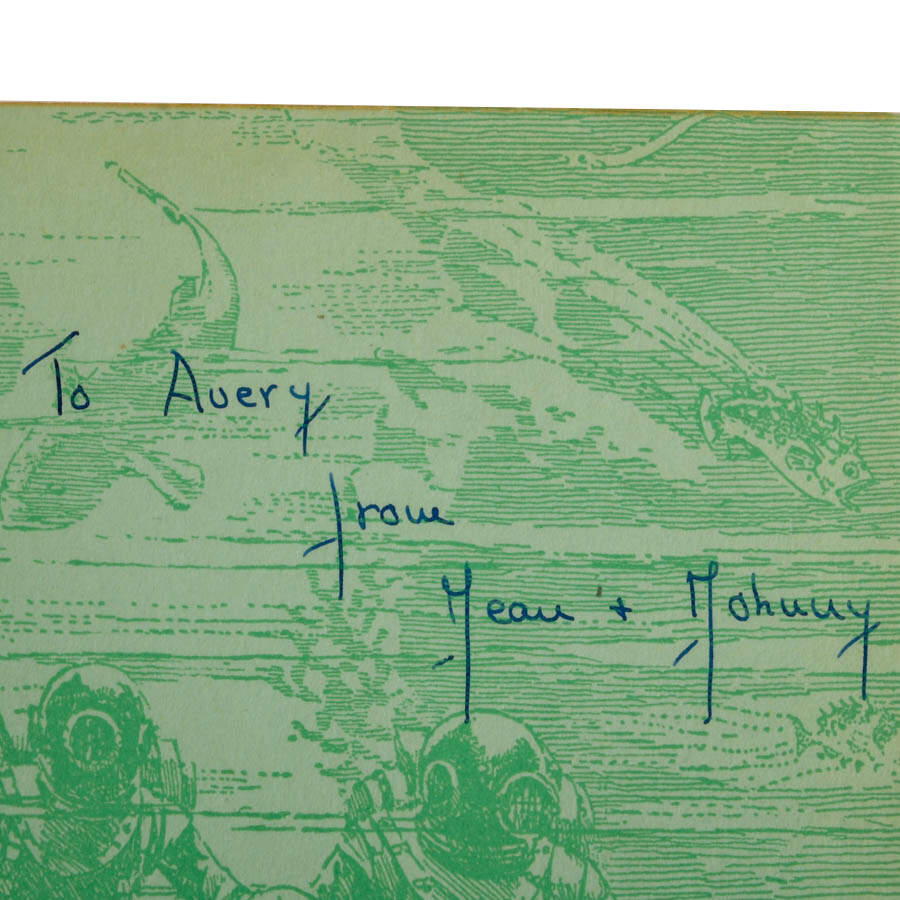 To Avery
from
Jean + Johnny